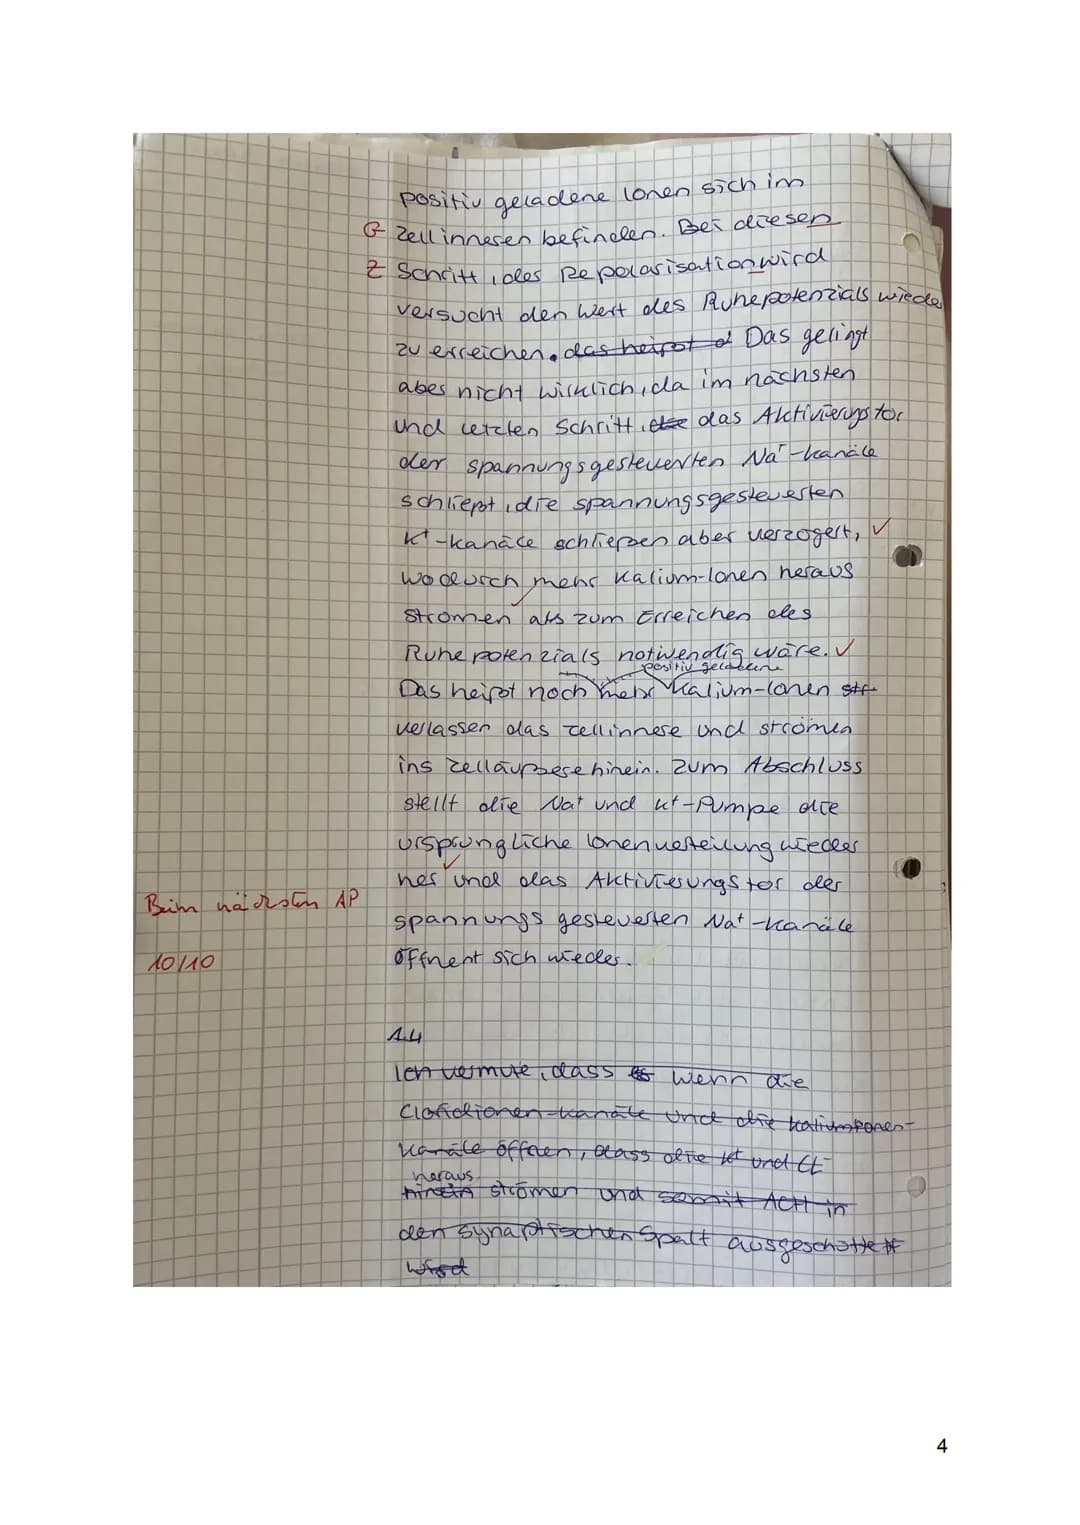 positiv geladene Ionen sich im
G Zellinneren befinden. Bei diesen
Z Schritt, des Repolarisation wird
versucht den Wert des Ruhepotenzials wieder
zu erreichen. das heißt d Das gelingt
aber nicht wirklich, da im nächsten
und letzten Schritt, die das Aktivierungstor
der spannungsgesteuerten Na⁺-kanäle
schließt, die spannungsgesteuerten
K⁺-kanäle schließen aber verzögert, ✓
wodurch mehr Kalium-Ionen heraus
strömen als zum Erreichen des
Ruhepotenzials notwendig wäre. ✓
positiv geladene
Das heißt noch mehr Kalium-Ionen str
verlassen das Zellinnere und strömen
ins Zelläußere hinein. Zum Abschluss
stellt die Na⁺ und K⁺-Pumpe die
ursprüngliche Ionenverteilung wieder
her und das Aktivierungstor der
Beim nächsten AP
spannungsgesteuerten Na⁺-kanäle
10/10
öffnent sich wieder.
1.4
Ich vermute, dass es wenn die
Cloridionen-kanäle und die kaliumionen-
kanäle öffnen, dass die K⁺ und Cl⁻
heraus
hinein strömen und somit ACH in
den synaptischen Spalt ausgeschüttet
wird
4